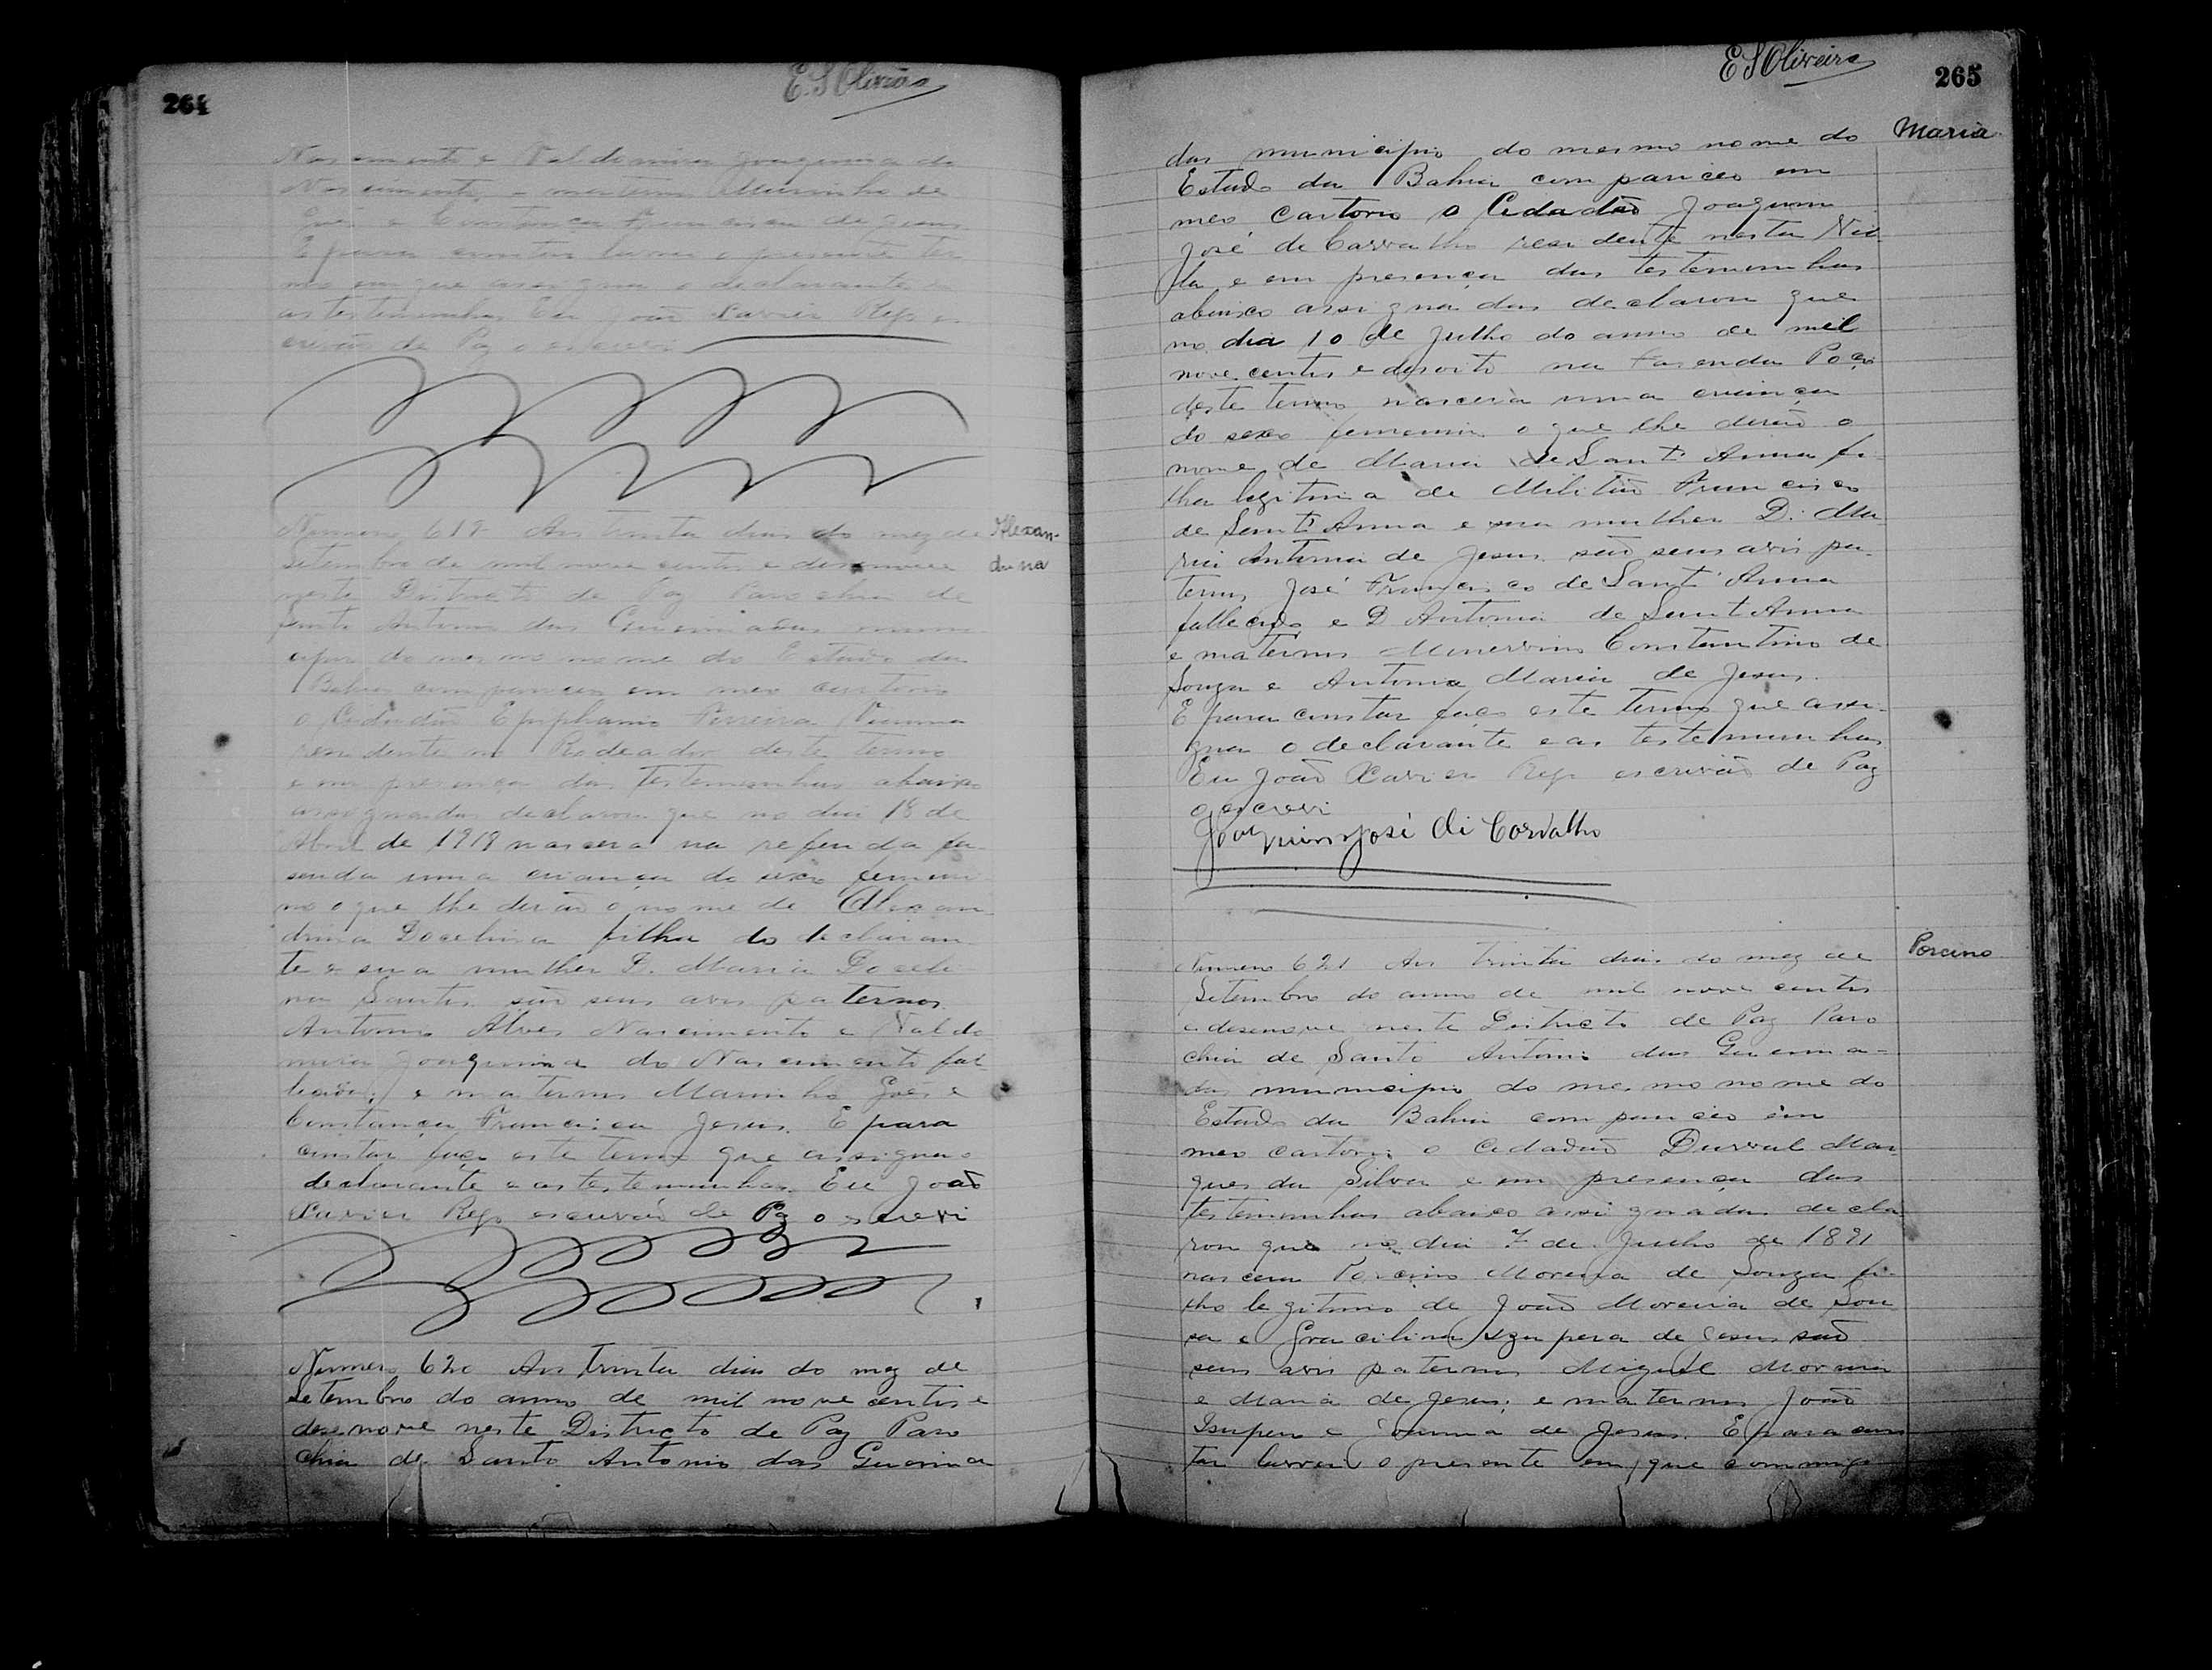 264
E. S. Oliveira
Nascimento e Valdomira Joaquina do
Nascimento, e maternos Marinho de
Goes e Constança Francisca de Jesus
E para constar lavrei o presente ter
mo em que assigna o declarante e
as testemunhas Eu João Xavier Rego es
crivão de Paz o escrevi
Numero 619 Aos trinta dias do mez de
Alexan-
drina
Setembro de mil nove centos e desenove
neste Districto de Paz Parochia de
Santo Antonio das Queimadas muni
cipio do mesmo nome do Estado da
Bahia compareceo em meo cartorio
o Cidadão Epiphanio Ferreira Vianna
residente no Rodeador deste termo
e em presença das testemunhas abaixo
assignadas declarou que no dia 18 de
Abril de 1918 nascera na referida fa
senda uma criança do sexo femeni
no o que lhe derão o nome de Alexan
drina Docelina filha do declaran
te e sua mulher D. Maria Doceli
na Santos são seus avos paternos
Antonio Alves Nascimento e Valdo
mira Joaquina do Nascimento fal
lecidos, e maternos Marinho Goes e
Constança Francisca Jesus. E para
constar faço este termo que assigna o
declarante e as testemunhas. Eu João
Xavier Rego escrivão de Paz o escrevi
Numero 620 Aos trinta dias do mez de
Setembro do anno de mil nove centos e
desenove neste Districto de Paz Paro
chia de Santo Antonio das Queima
E S Oliveira
265
Maria
das municipio do mesmo nome do
Estado da Bahia compareceo em
meo Cartorio o Cidadão Joaquim
José de Carvalho residente nesta Vil
la e em presença das testemunhas
abaixo assignadas declarou que
no dia 10 de Julho do anno de mil
nove centos e desoito na Fasenda Poço
deste termo nascera uma criança
do sexo femenino o que lhe derão o
nome de Maria de Sant'Anna fi
lha legitima de Militão Francisco
de Sant'Anna e sua mulher D. Ma
ria Antonia de Jesus são seus avos pa-
ternos José Francisco de Sant'Anna
fallecido e D Antonia de Sant Anna
e maternos Minervino Constantino de
Souza e Antonia Maria de Jesus.
E para constar faço este termo que assi-
gna o declarante e as testemunhas
Eu João Xavier Rego escrivão de Paz
o escrevi
Joaquim José di Carvalho
Porcino
Numero 621 Aos trinta dias do mez de
Setembro do anno de mil nove centos
e desenove neste Districto de Paz Paro
chia de Santo Antonio das Queima-
das municipio do mesmo nome do
Estado da Bahia compareceo em
meo cartorio o Cidadão Durval Mar
ques da Silva e em presença das
testemunhas abaixo assignadas decla
rou que no dia 7 de Junho de 1891
nascera Porcino Moreira de Souza fi-
lho legitimo de João Moreira de Sou
sa e Gracilina de Jesus são
seus avos paternos Miguel Moreira
e Maria de Jesus; e maternos João
e Joanna de Jesus. E para cons
tar lavrei o presente em que commigo